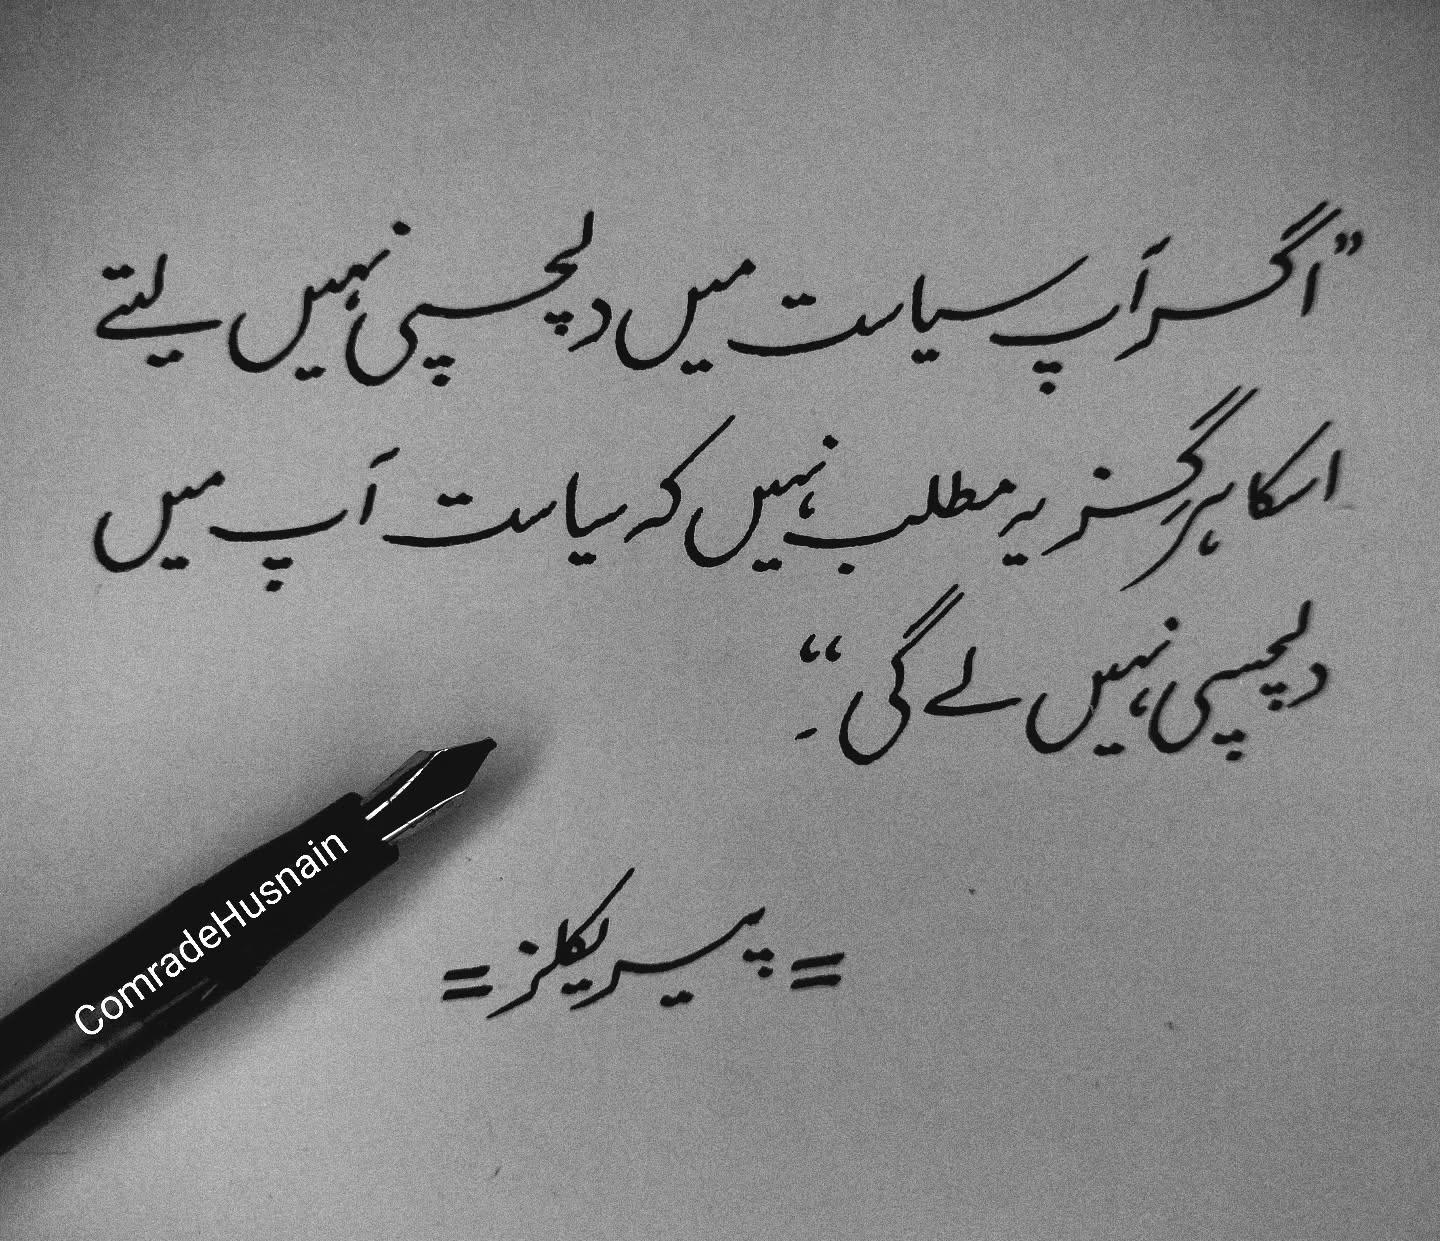 ”اگر آپ سیاست میں دلچسپی نہیں لیتے
اسکا ہرگز یہ مطلب نہیں کہ سیاست آپ میں
دلچسپی نہیں لے گی“۔
= پیریکلز =
ComradeHusnain